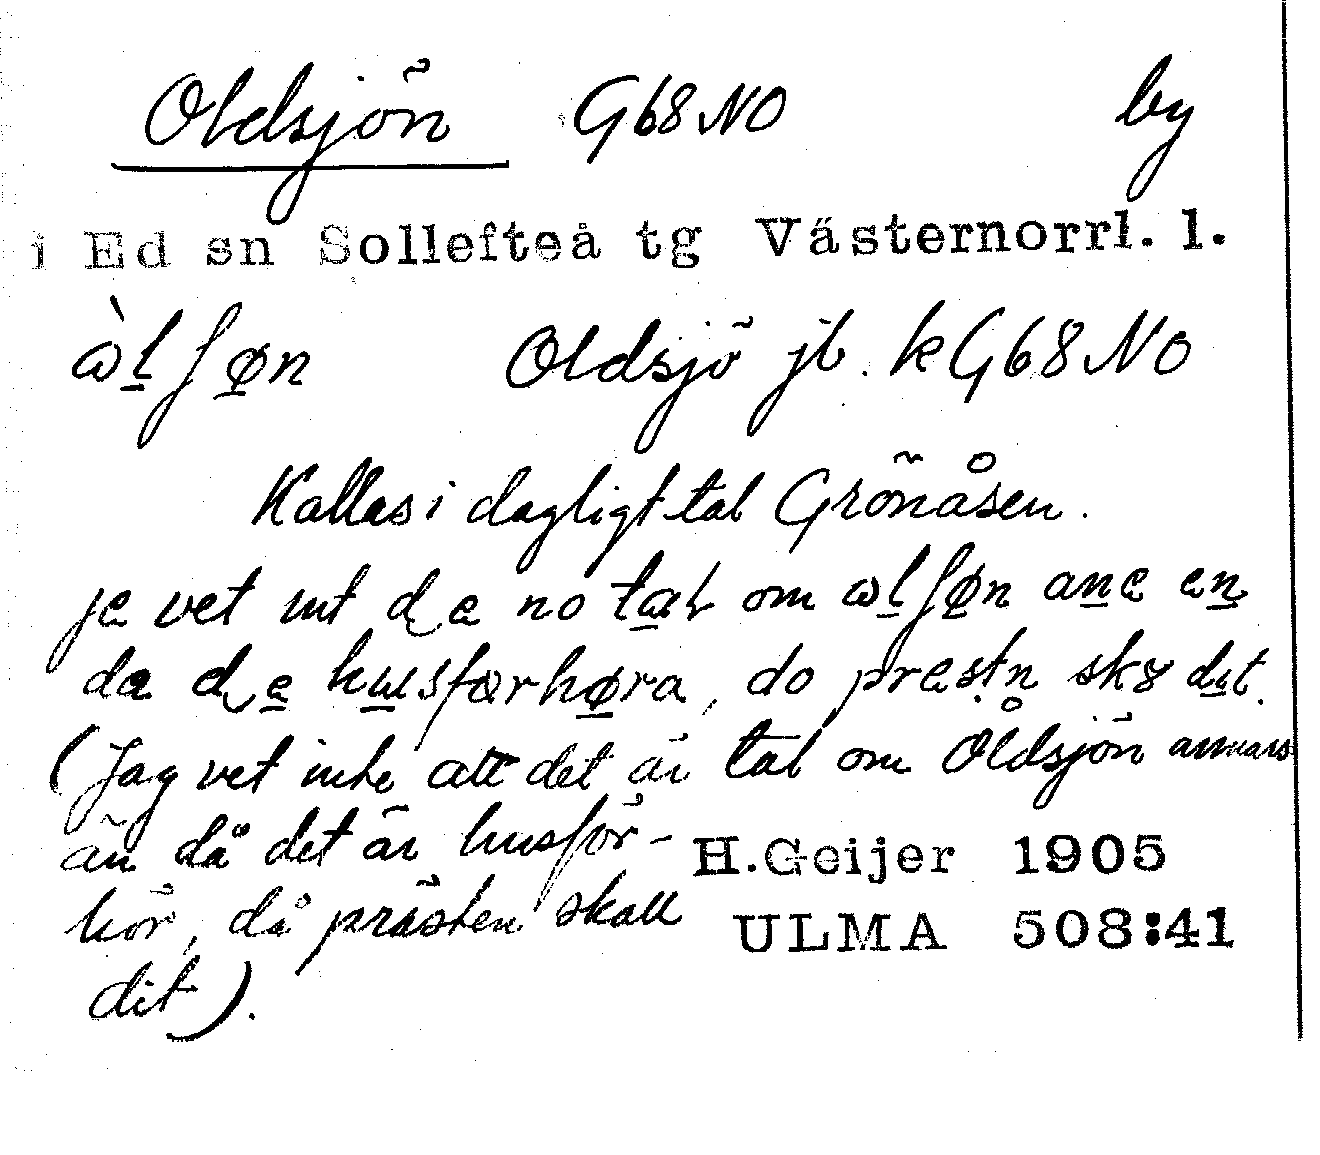 Oldsjön G68NO by
i Ed sn Sollefteå tg Västernorrl. l.
ὼlʃøn Oldsjö jb. kG68NO
Kallas i dagligt tal Grönåsen.
je vet int de no tal om ωlʃøn ane en
da de husfærhøra, do prestn skȣ dit.
(Jag vet inte att det är tal om Oldsjön annars
än då det är husför-
hör, då prästen skall
dit).
H.Geijer 1905
ULMA 508:41